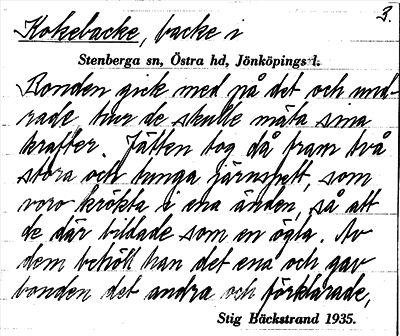 3.
Kokebacke, backe i
Stenberga sn, Östra hd, Jönköpings l.
Bonden gick med på det och und-
rade, hur de skulle mäta sina
krafter. Jätten tog då fram två
stora och tunga järnspett, som
voro krökta i ena änden, så att
de där bildade som en ögla. Av
dem behöll han det ena och gav
bonden det andra och förklarade,
Stig Bäckstrand 1935.